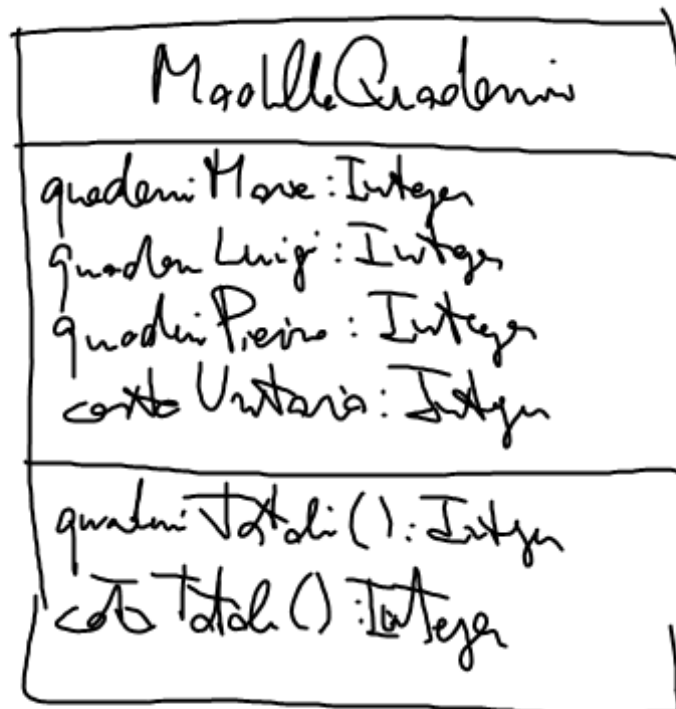 ModelloQuaderni
quaderniMario: Integer
quaderniLuigi: Integer
quaderniPierino: Integer
costoUnitario: Integer
quaderniTotali(): Integer
costoTotale(): Integer